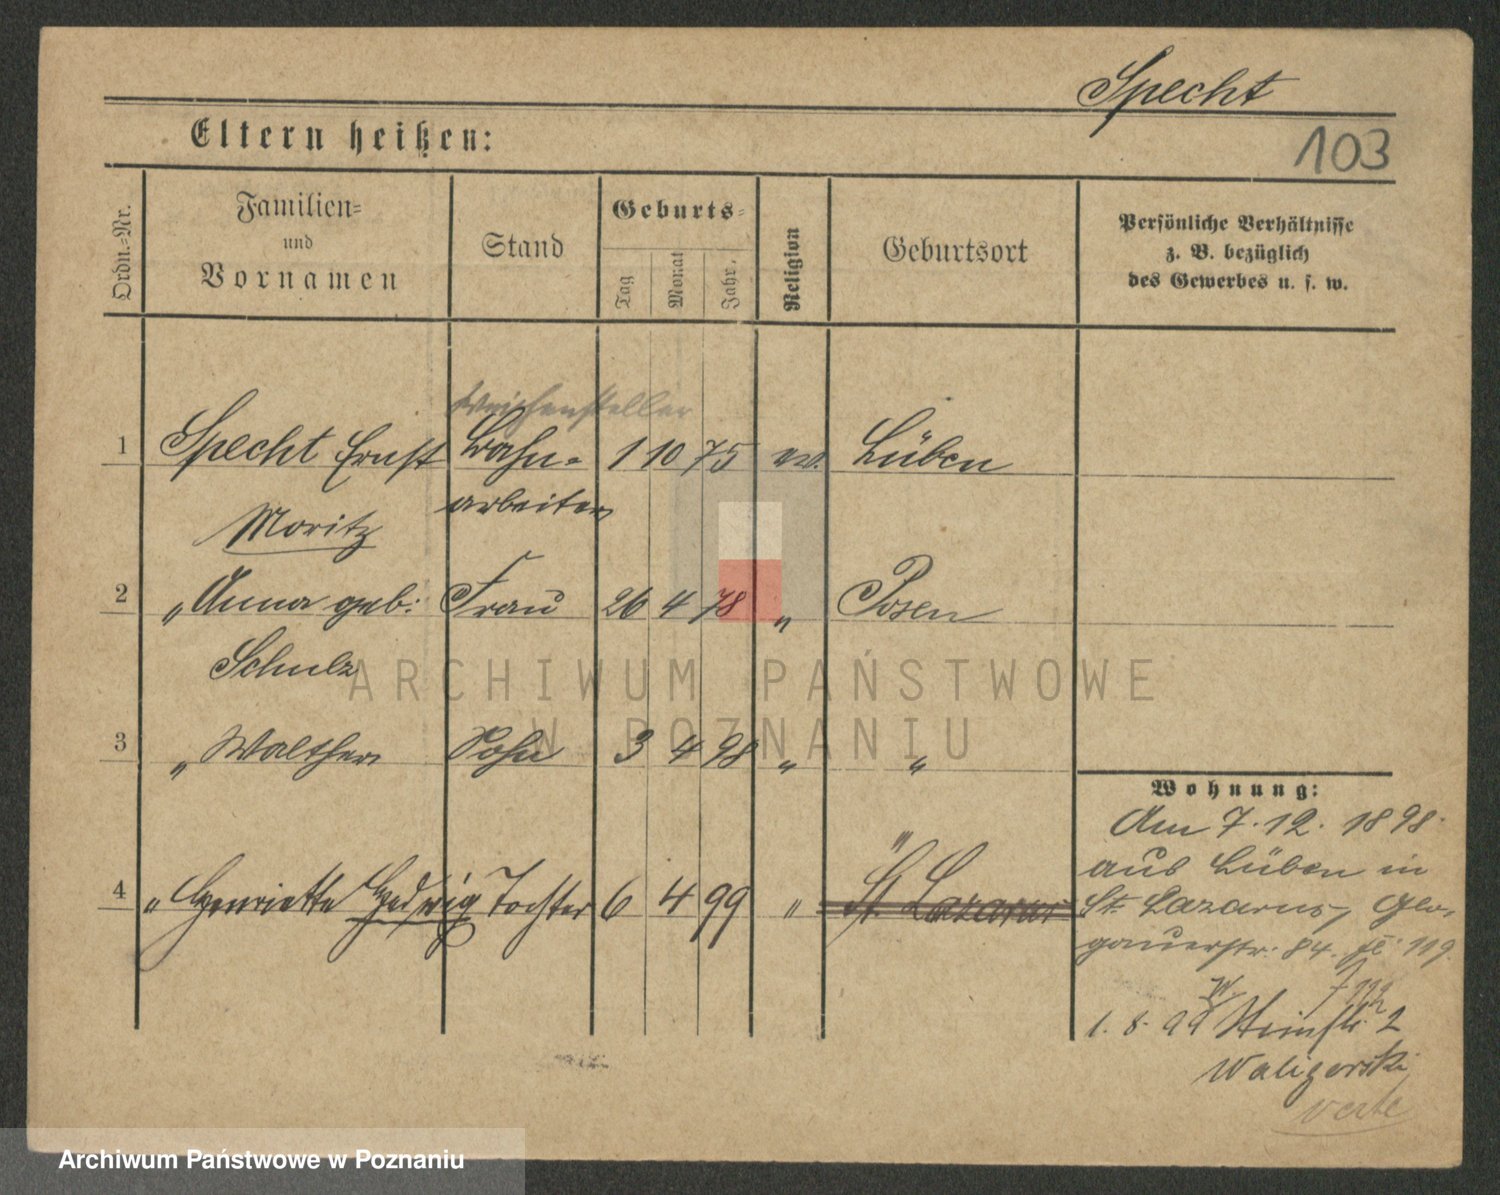 Specht
Eltern heißen:
103
Ordn.-Nr.
Familien-
und
Vornamen
Stand
Geburts-
Tag
Monat
Jahr.
Religion
Geburtsort
Persönliche Verhältnisse
z. B. bezüglich
des Gewerbes u. s. w.
Weichensteller
1 Specht Ernst Bahn- 1 10 75 ev. Lüben
Moritz arbeiter
2 " Anna geb. Frau 26 4 78 " Posen
Schulz
3 " Walther Sohn 3 4 98 " "
"
4 " Henriette Hedwig Tochter 6 4 99 " St. Lazarus
Wohnung:
Am 7.12.1898
aus Lüben in
St. Lazarus, Glo-
gauerstr. 84.
1. 8. 99 2
Waligorski
verte
ARCHIWUM PAŃSTWOWE
W POZNANIU
Archiwum Państwowe w Poznaniu